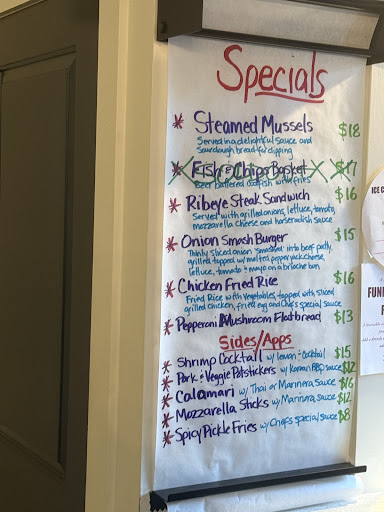 Specials
* Steamed Mussels $18
Served in a delightful sauce and
sourdough bread for dipping
* Fish & Chips Basket $17
Beer battered codfish with fries
* Ribeye Steak Sandwich $16
Served with grilled onions, lettuce, tomato,
mozzarella cheese and horseradish sauce
* Onion Smash Burger $15
Thinly sliced onion "smashed" into beef patty,
grilled topped w/ melted pepperjack cheese,
lettuce, tomato & mayo on a brioche bun
* Chicken Fried Rice $16
Fried Rice with Vegetables, topped with sliced
grilled chicken, fried egg and Chef's special sauce
* Pepperoni Mushroom Flatbread $13
Sides/Apps
* Shrimp Cocktail w/ lemon & Cocktail $15
* Pork & Veggie Potstickers w/ Korean BBQ sauce $12
* Calamari w/ Thai or Marinera sauce $16
* Mozzarella Sticks w/ Marinera sauce $12
* Spicy Pickle Fries w/ Chef's special sauce $8
ICE C
FUN